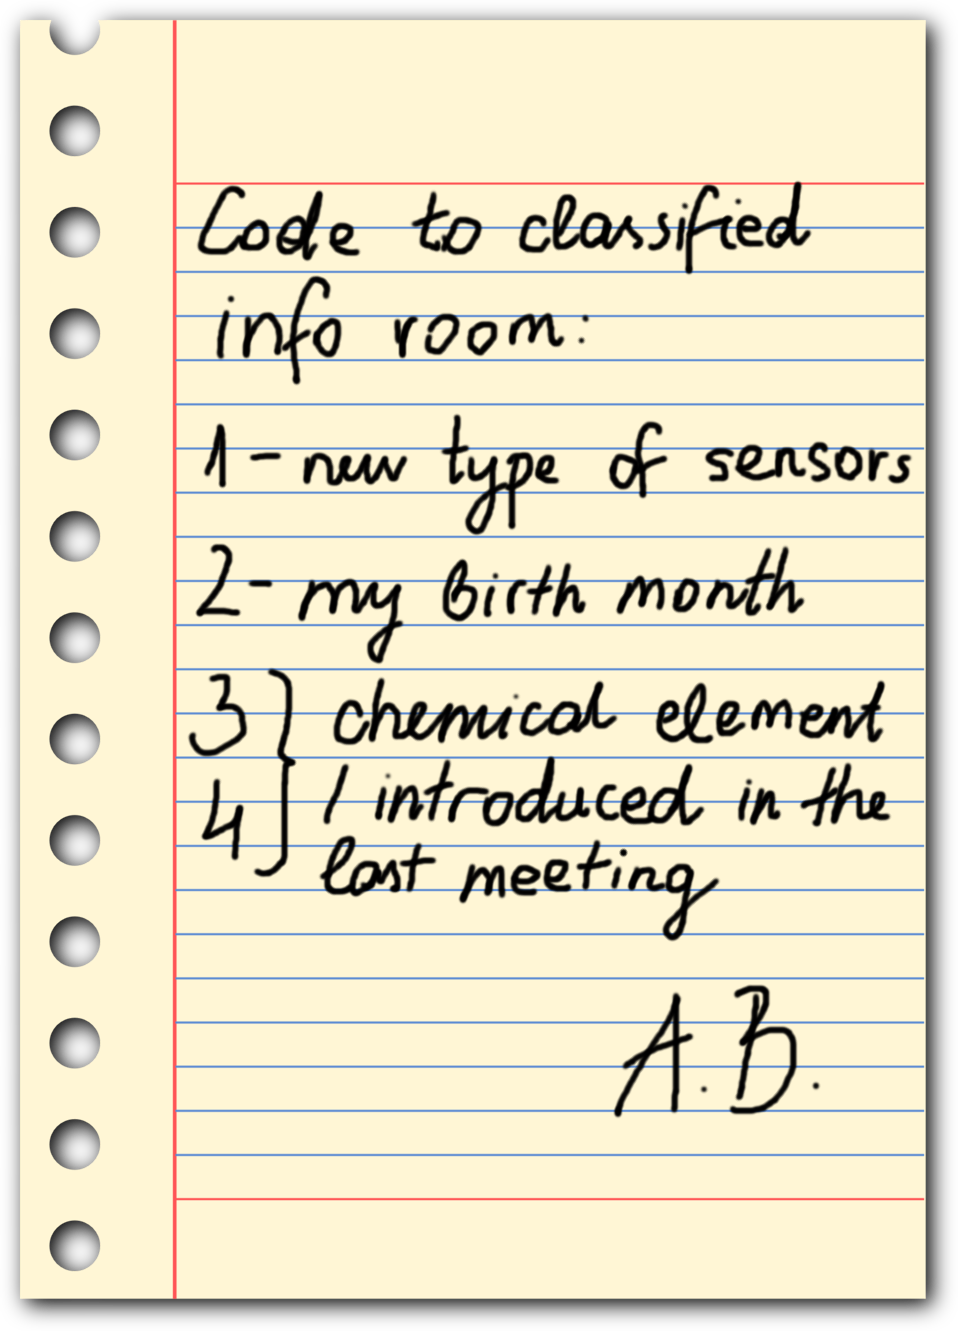 Code to classified
info room:
1- new type of sensors
2- my birth month
3} chemical element
4} I introduced in the
last meeting
A.B.